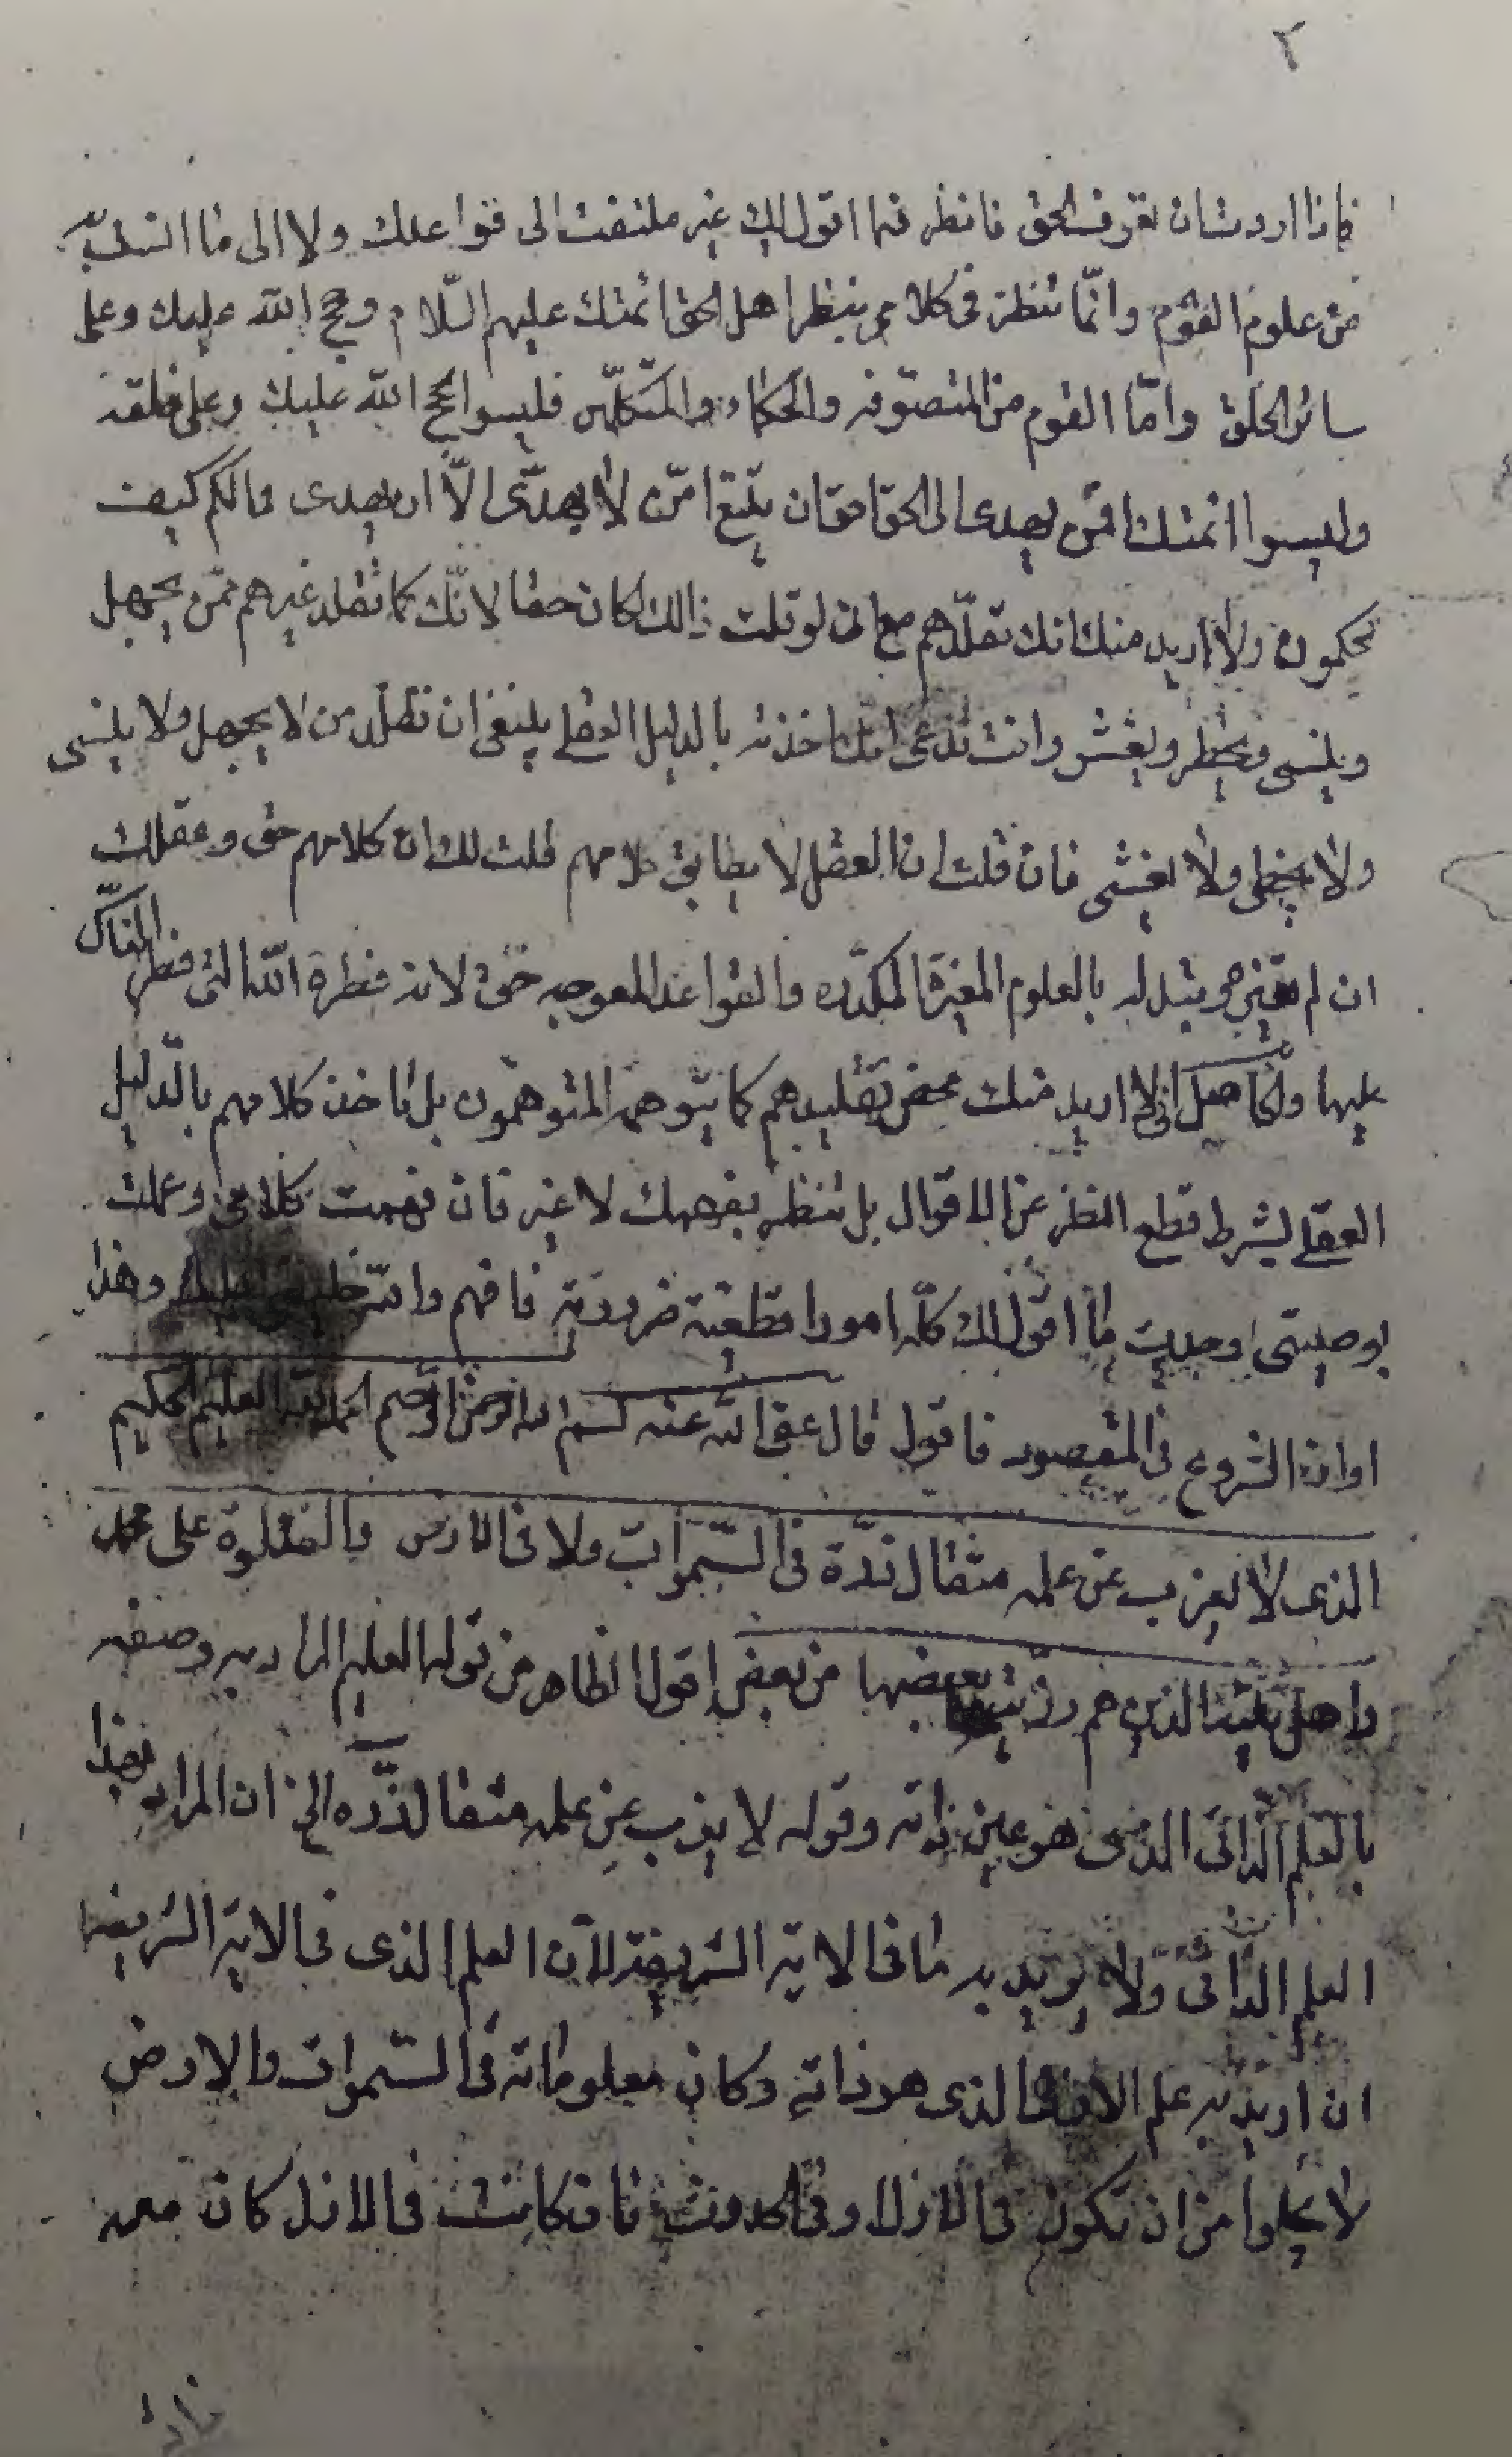 ٢
فاذا اردت ان تعرف الحق فانظر فيما اقول لك غير ملتفت الى قواعدك ولا الى ما انست به
من علوم القوم وانّما تنظر فى كلامى بنظر اهل الحق ائمتك عليهم السّلام وحجج الله عليك وعلى
سائر الخلق وامّا القوم من المتصوّفه والحكماء والمتكلّمين فليسوا بحجج الله عليك وعلى خلقه
وليسوا ائمتك افمن يهدى الى الحق احق ان يتّبع امّن لا يهدّى الّا ان يهدى فمالكم كيف
تحكمون ولا اريد منك انك تقلّدهم مع انى لو قلت ذالك لكان حقا لانّك كما تقلد غيرهم ممّن يجهل
وينسى ويخطر ويغش وانت تدعى انك اخذته بالدليل العقلى ينبغى ان تقلّد من لا يجهل ولا ينسى
ولا يخطى ولا يغش فان قلت ان العقل لا يطابق كلامهم قلت لك ان كلامهم حق وعقلك
ان لم تغيّره وتبدله بالعلوم المغيرة المكدّره والقواعد المعوجه حق لانه فطرة الله التى فطر الناس
عليها والحاصل انى لا اريد منك محض تقليدهم كما يتوهمه المتوهّمون بل تاخذ كلامهم بالدّليل
العقلى بشرط قطع النظر عن الاقوال بل تنظر بفهمك لا غير فان فهمت كلامى وعملت
بوصيتى وجدت ما اقول لك كلّه امورا قطعية ضرورية فافهم والله خليفتى عليك وهذا
اوان الشروع فى المقصود فاقول قال عفى الله عنه بسم الله الرحمن الرّحيم الحمد لله العليم الحكيم
الذى لا يعزب عن علمه مثقال ذرّة فى السّموات ولا فى الارض والصلوة على محمد
واهل بيته الذين هم ذرّية بعضها من بعض اقول الظاهر من قوله العليم المراد به وصفه
بالعلم الذاتى الذى هو عين ذاته وقوله لا يعزب عن علمه مثقال ذرّه الخ ان المراد بهذا
العلم الذاتى ولا يريد به ما فى الاية الشريفة لان العلم الذى فى الاية الشريفه
ان اريد به علم الازلى الذى هو ذاته وكان معلوماته فى السّموات والارض
لا يخلوا من ان تكون فى الازل او فى الحدوث فان كانت فى الازل كان معه